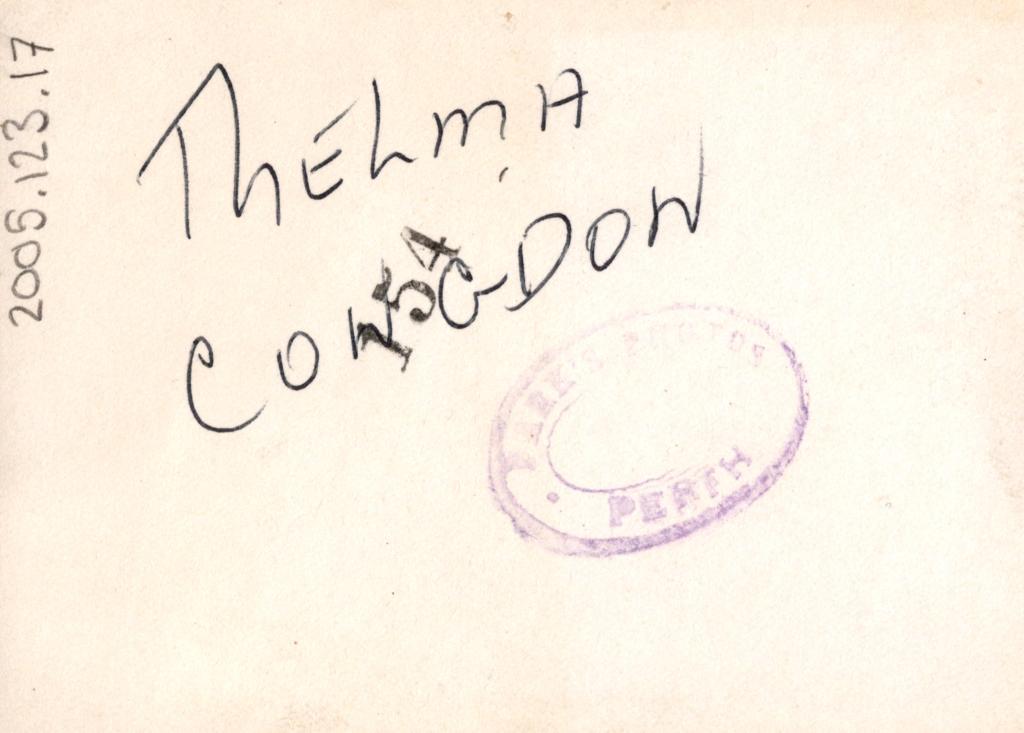 2005.123.17
THELMA
CONGDON
154
PHOTOS
PERTH